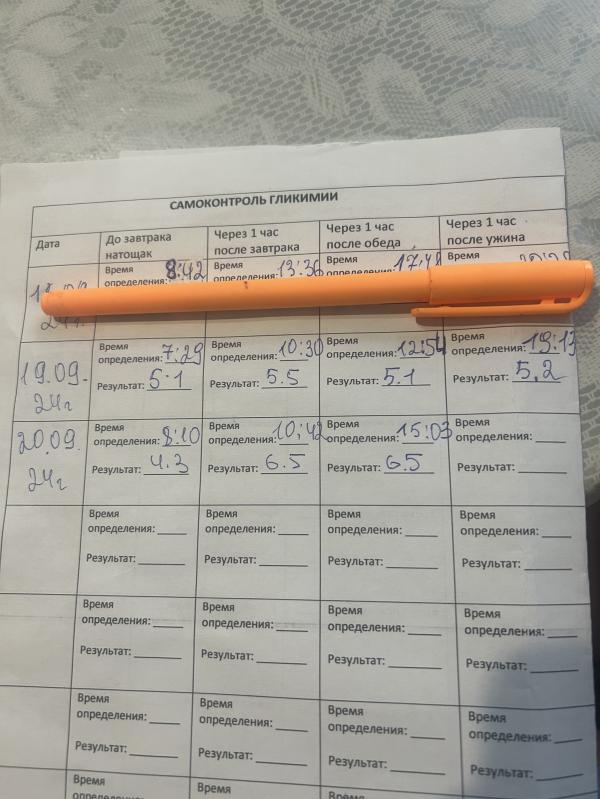 САМОКОНТРОЛЬ ГЛИКИМИИ
Дата
До завтрака
натощак
Через 1 час
после завтрака
Через 1 час
после обеда
Через 1 час
после ужина
Время
определения: 8:42
Время
определения: 13:36
Время
определения: 17:48
Время
24г.
19.09.
24г
Время
определения: 7:29
Результат: 5.1
Время
определения: 10:30
Результат: 5.5
Время
определения: 12:54
Результат: 5.1
Время
определения: 19:13
Результат: 5.2
20.09.
24г
Время
определения: 8:10
Результат: 4.3
Время
определения: 10:42
Результат: 6.5
Время
определения: 15:03
Результат: 6.5
Время
определения:
Результат:
Время
определения:
Результат:
Время
определения:
Результат:
Время
определения:
Результат:
Время
определения:
Результат:
Время
определения:
Результат:
Время
определения:
Результат:
Время
определения:
Результат:
Время
определения:
Результат:
Время
определения:
Результат:
Время
определения:
Результат:
Время
определения:
Результат:
Время
определения:
Результат:
Время
определения:
Время
Время